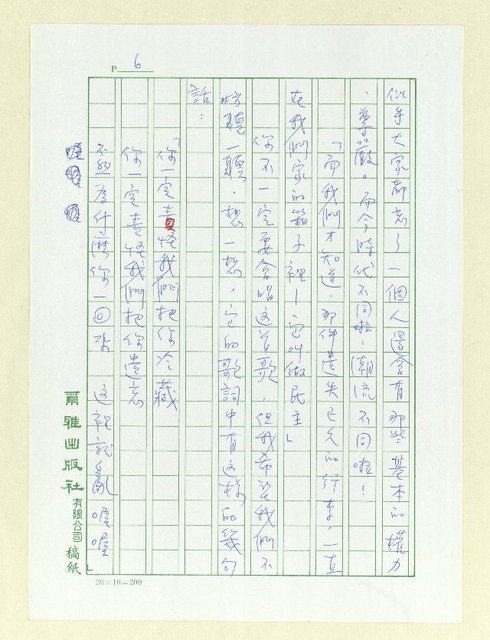 P 6
似乎大家都忘了一個人還會有那些基本的權力
、尊嚴。而今時代不同啦！潮流不同啦！
「而我們才知道，那件遺失已久的行李，一直
在我們家的箱子裡！它叫做民主」
你不一定要會唱這首歌，但我希望我們不
妨聽一聽，想一想，它的歌詞中有這樣的幾句
話：
「你一定責怪我們把你冷藏
你一定責怪我們把你遺忘
為什麼你一回
這裡就亂喔喔」
爾雅出版社有限公司稿紙
20×10=200